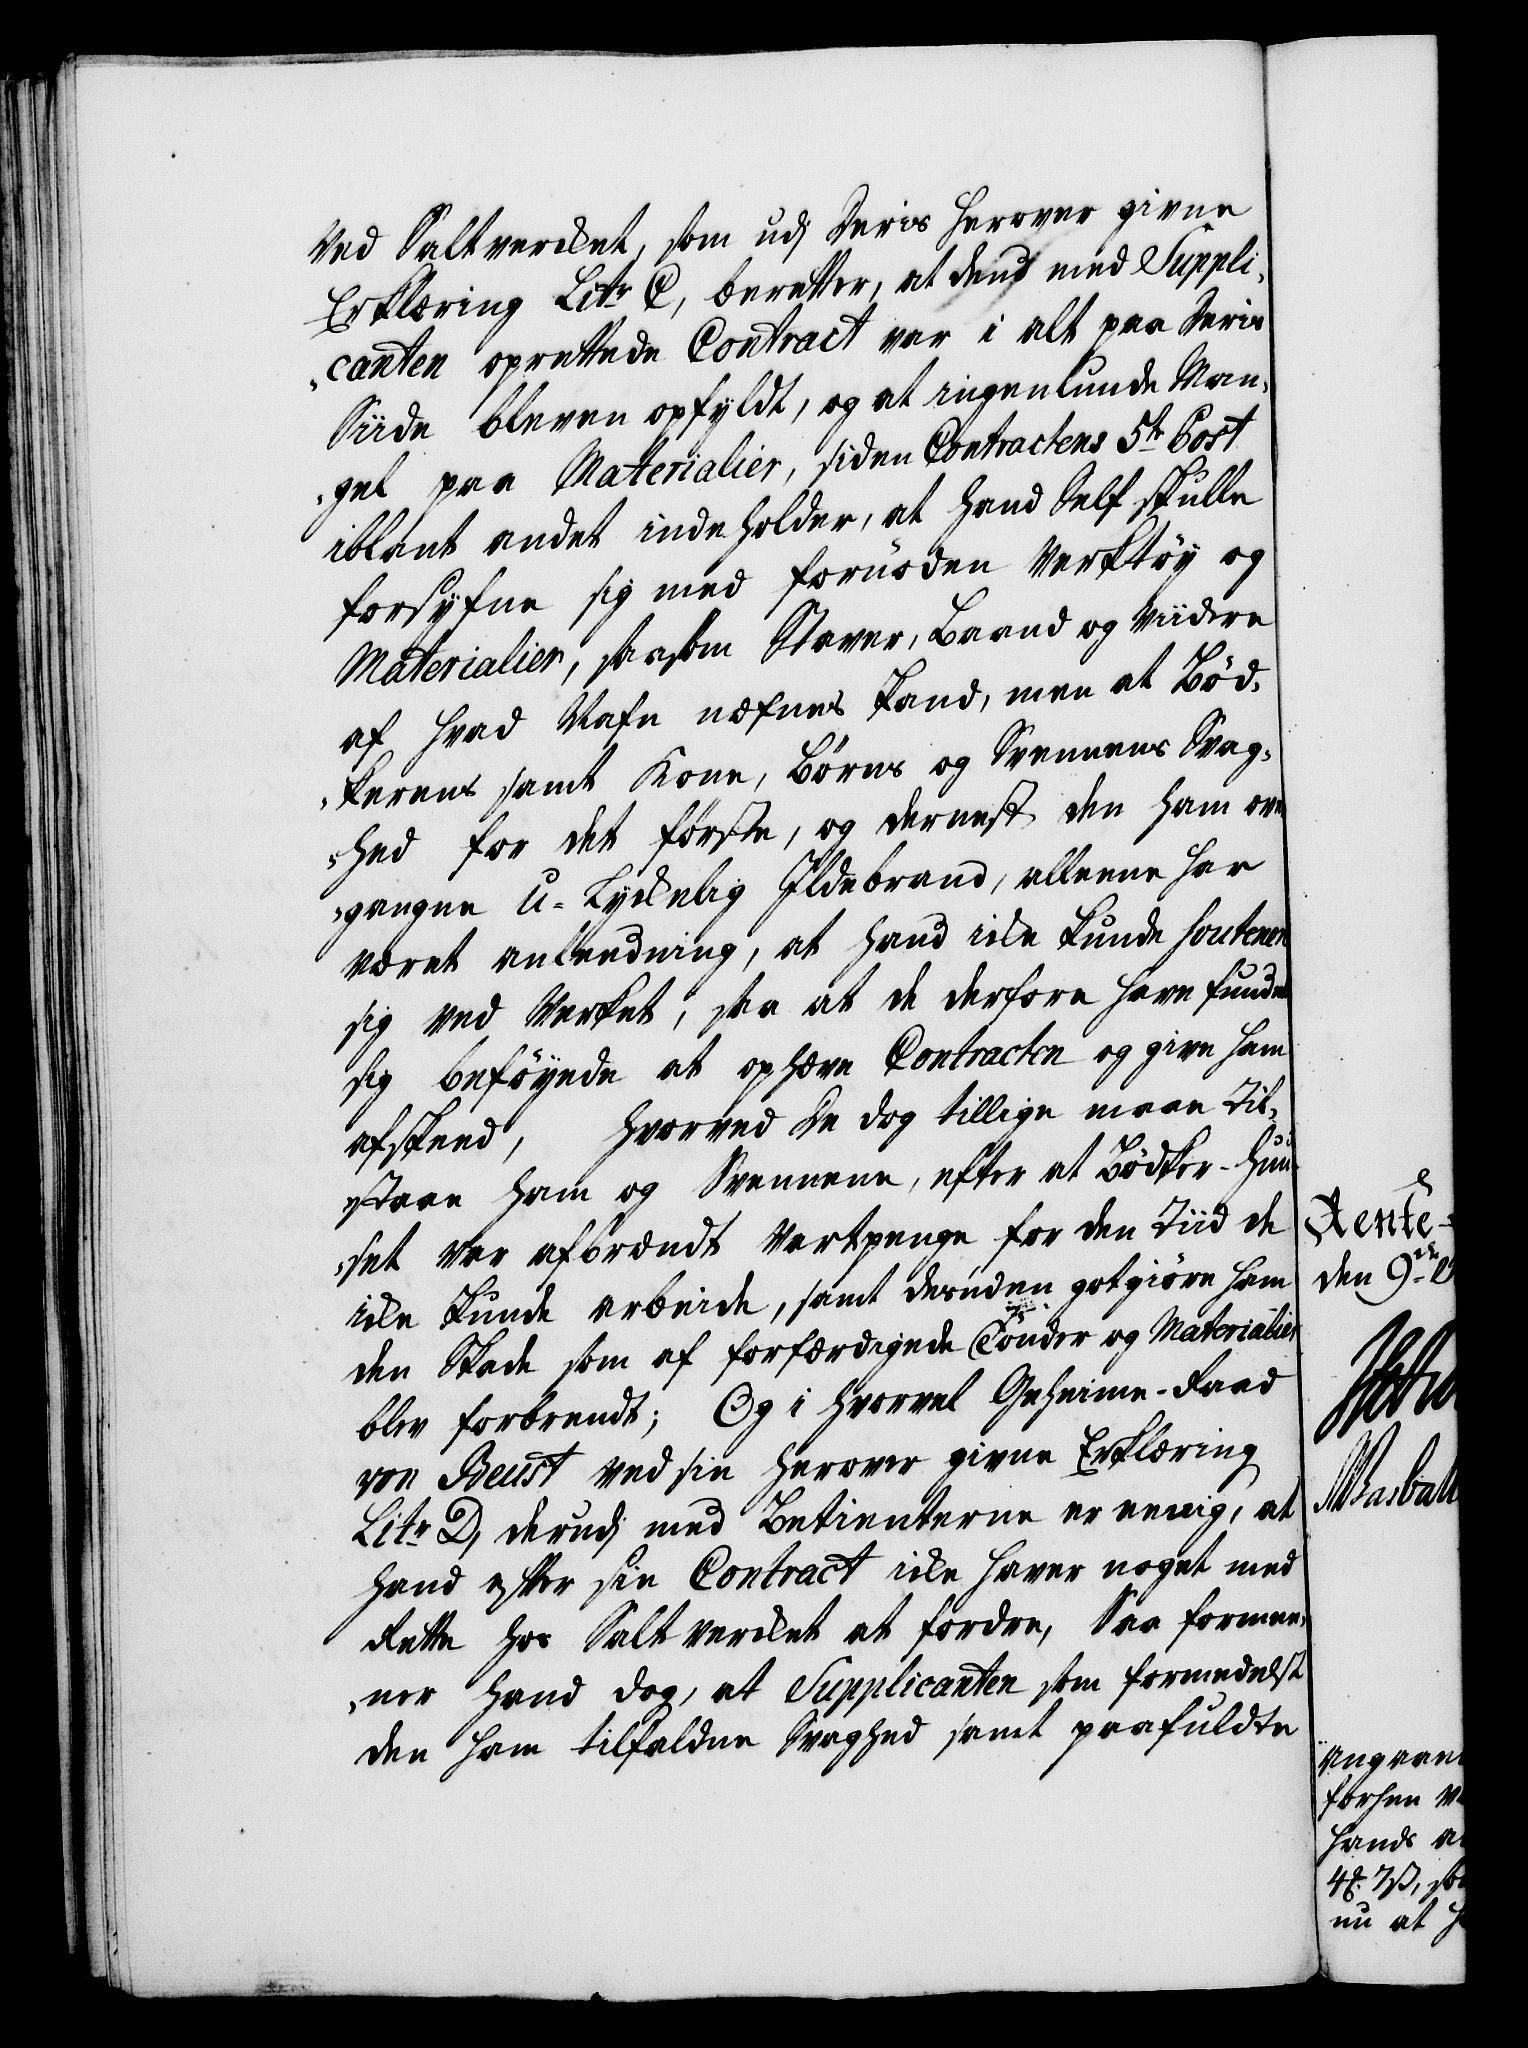 ved Saltverket, som udj deris herover givne
Erklæring Litr C, beretter, at dend med Suppli-
canten oprettede Contract var i alt paa deris
Siide bleven opfyldt, og at ingenlunde Man-
gel paa Materialier, siden Contractens 5te Post
iblant andet indeholder, at hand Self skulle
forsyfne sig med fornöden Verktöy og
Materialier, saasom Staver, Baand og viidere
af hvad Nafn næfnes kand, men at Böd-
kerens samt Kone, Börns og Svennens Svag-
hed for det förste, og dernest den ham over
gangne U-Lyckelig Ildebrand, alleene har
været anleedning, at hand icke kunde soutenere
sig ved Verket, saa at de derfore have fundet
sig beföyede at ophæve Contracten og give ham
afskeed, hvorved de dog tillige maae til-
staae ham og Svennene, efter at Bödker-Huu-
set var afbrændt Vartpenge for den Tiid de
icke kunde arbeide, samt desuden gotgiöre ham
den Skade som af forfærdigede Tönder og Materialier
blev forbrendt; Og i hvorvel Geheime-Raad
von Beust ved sin herover givne Erklæring
Litr D, derudj med Betienterne er eenig, at
hand efter sin Contract icke haver noget med
Rette hos Saltverket at fordre, Saa formee-
ner hand dog, at Supplicanten som formedelst
den ham tilfaldne Svaghed samt paafuldte
Rente-
den 9de
angaaen
forhen
hands
nu at